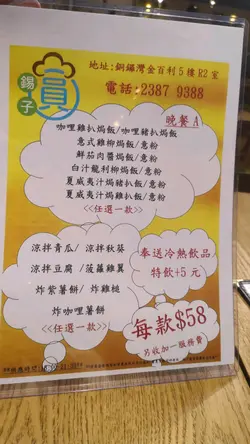 錫子圓
地址:銅鑼灣金百利5樓R2室
電話:2387 9388
晚餐 A
咖哩雞扒焗飯/咖哩豬扒焗飯
意式雞柳焗飯/意粉
鮮茄肉醬焗飯/意粉
白汁龍利柳焗飯/意粉
夏威夷汁焗豬扒飯/意粉
夏威夷汁焗雞扒飯/意粉
<<任選一款>>
涼拌青瓜/ 涼拌秋葵
涼拌豆腐 /菠蘿雞翼
炸紫薯餅/ 炸雞槌
炸咖哩薯餅
<<任選一款>>
奉送冷熱飲品
特飲+5 元
每款$58
另收加一服務費